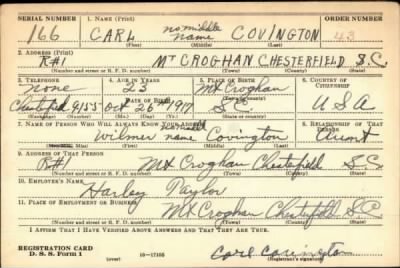 SERIAL NUMBER 1. NAME (Print) ORDER NUMBER
166 CARL no middle name COVINGTON 43
(First) (Middle) (Last)
2. ADDRESS (Print)
R#1 MT CROGHAN CHESTERFIELD S.C.
(Number and street or R. F. D. number) (Town) (County) (State)
3. TELEPHONE 4. AGE IN YEARS 5. PLACE OF BIRTH 6. COUNTRY OF CITIZENSHIP
None 23 Mt Croghan
DATE OF BIRTH
Chesterfield 9155 Oct 26 1917 S.C. U.S.A
7. NAME OF PERSON WHO WILL ALWAYS KNOW YOUR ADDRESS 8. RELATIONSHIP OF THAT PERSON
Wilmer name Covington Aunt
9. ADDRESS OF THAT PERSON
R#1 Mt Croghan Chesterfield S.C.
(Number and street or R. F. D. number) (Town) (County) (State)
10. EMPLOYER'S NAME
Harley Taylor
11. PLACE OF EMPLOYMENT OR BUSINESS
Mt Croghan Chesterfield S.C.
(Number and street or R. F. D. number) (Town) (County) (State)
I AFFIRM THAT I HAVE VERIFIED ABOVE ANSWERS AND THAT THEY ARE TRUE.
REGISTRATION CARD
D. S. S. Form 1 (over) 16—17105 Carl Covington
(Registrant's signature)